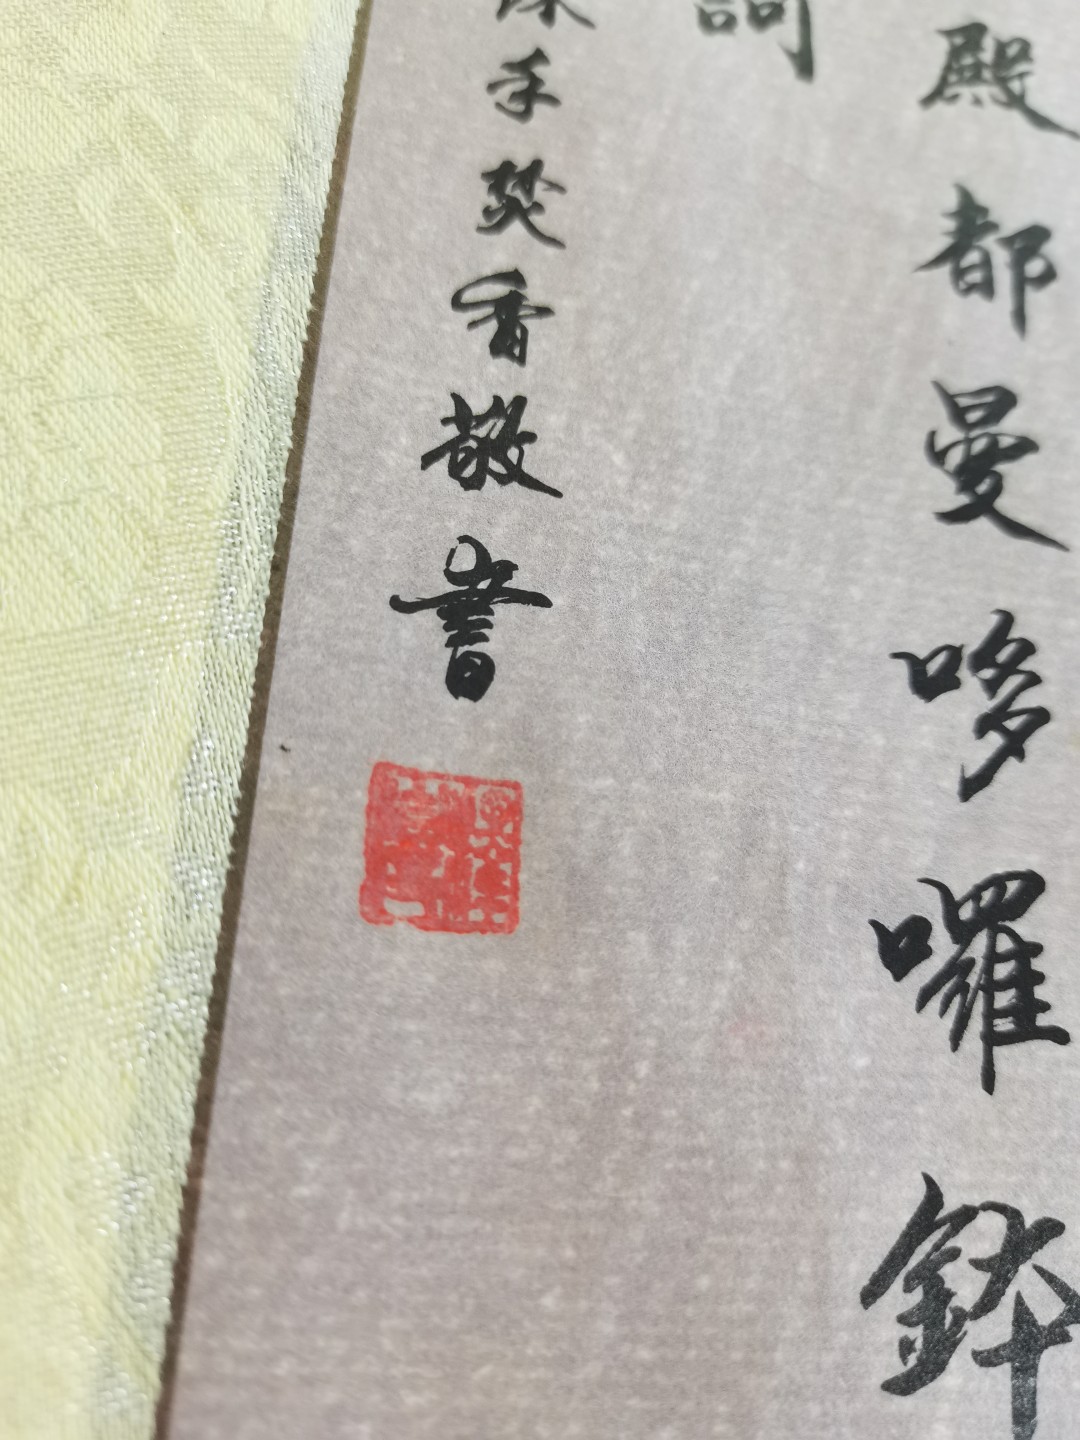 殿都曼哆囉鉢
訶
手焚香敬書